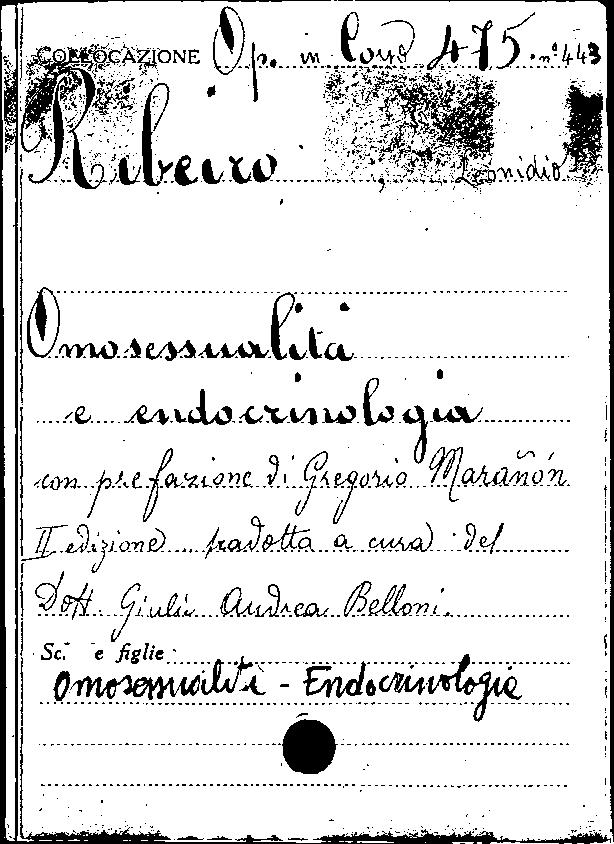 COLLOCAZIONE Op. in Cons 475. nº 443
Ribeiro, Leonidio
Omosessualità
e endocrinologia
con prefazione di Gregorio Marañón
II edizione tradotta a cura del
Dott. Giulio Andrea Belloni.
e figlie
Omosessualità - Endocrinologia